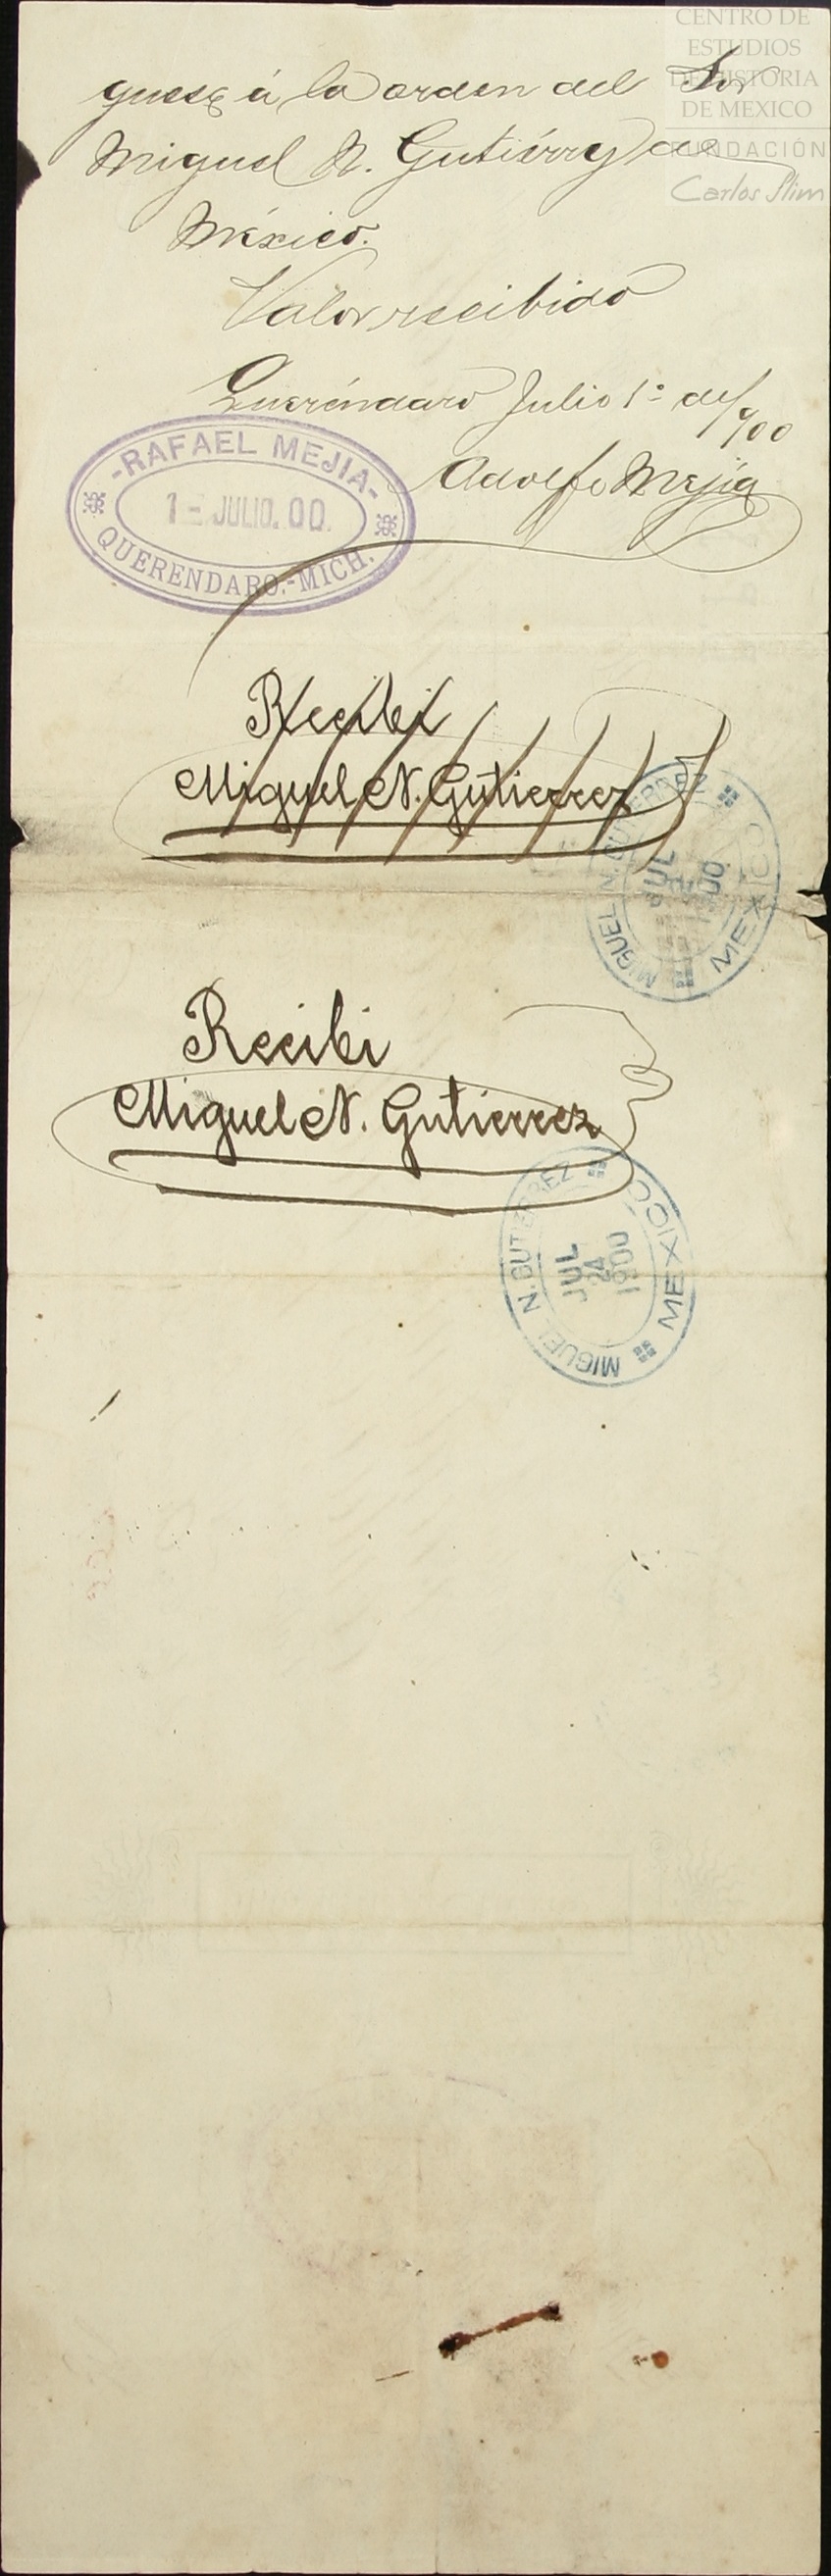 CENTRO DE
ESTUDIOS
DE HISTORIA
DE MEXICO
FUNDACIÓN
Carlos Slim
guese á la orden del Sor
Miguel N. Gutiérrez de
México.
Valor recibido
Queréndaro Julio 1º de/900
Adolfo Mejía
-RAFAEL MEJIA-
1- JULIO. 00.
QUERENDARO.-MICH.
Recibi
Miguel N. Gutierrez
MIGUEL N. GUTIERREZ
JUL
1900
MEXICO
Recibi
Miguel N. Gutierrez
MIGUEL N. GUTIERREZ
JUL
24
1900
MEXICO